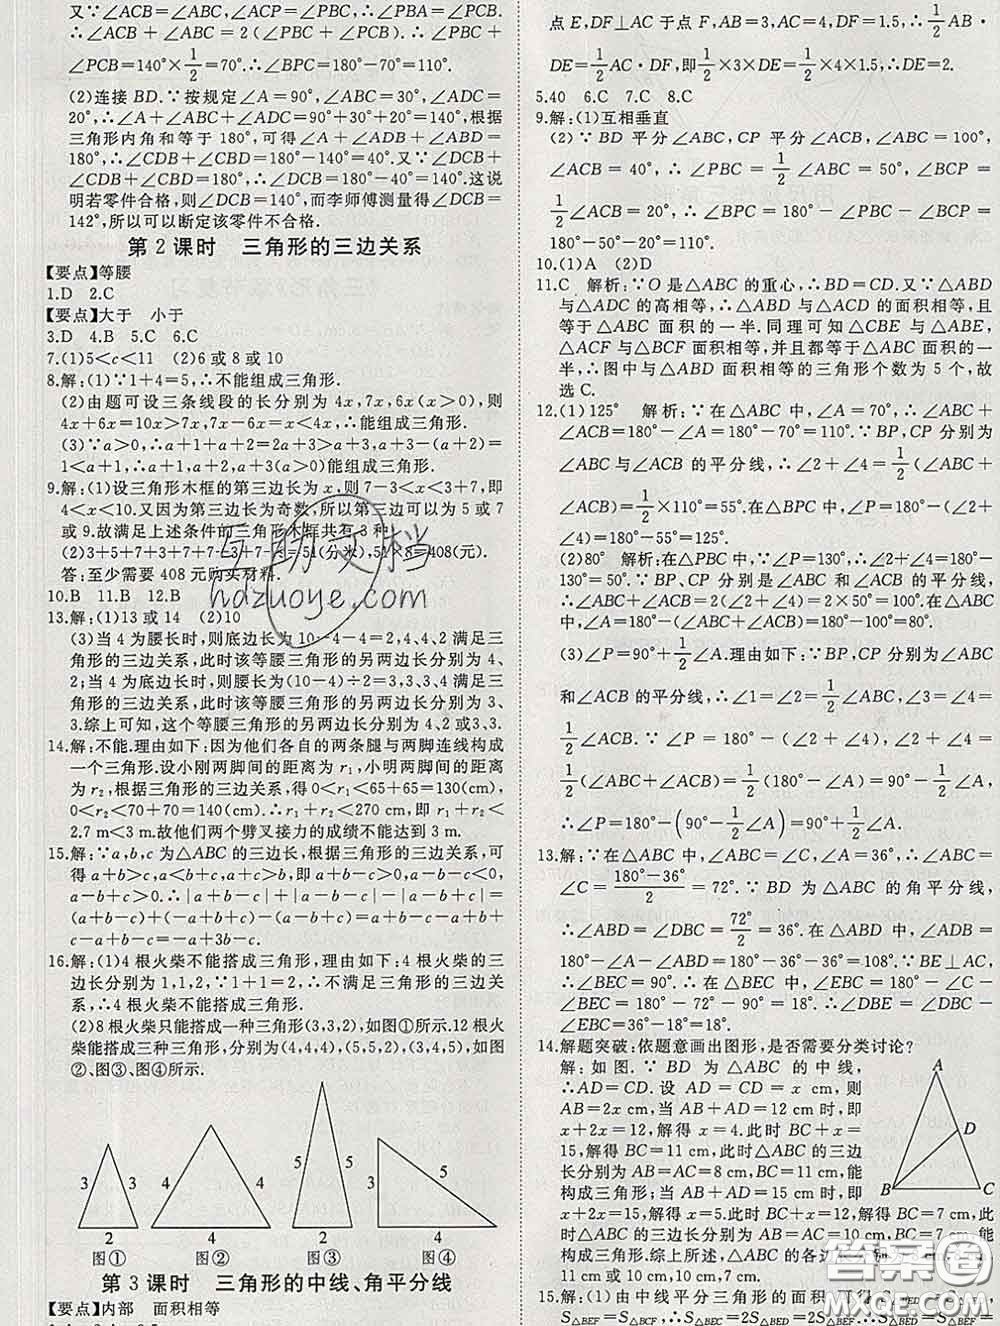 又∵∠ACB=∠ABC,∠PBA=∠PCB.
∴∠ACB+∠ABC=2(∠PBC+∠PCB).∴∠PBC+
∠PCB=140°×1/2=70°.∴∠BPC=180°-70°=110°.
(2)连接 BD.∵按规定∠A=90°,∠ABC=30°,∠ADC=
20°,∴∠A+∠ABC+∠ADC=90°+30°+20°=140°,根据
三角形内角和等于180°,可得∠A+∠ADB+∠ABD=
180°,∴∠CDB+∠CBD=180°-140°=40°.又∵∠DCB
+∠CDB+∠CBD=180°,∴∠DCB=180°-40°=140°.这说
明若零件合格,则∠DCB=140°,而李师傅测量得∠DCB=
142°,所以可以断定该零件不合格.
第2课时 三角形的三边关系
【要点】等腰
1.D 2.C
【要点】大于 小于
3.D 4.B 5.C 6.C
7.(1)5<c<11 (2)6或8或10
8.解:(1)∵1+4=5,∴不能组成三角形.
(2)由题可设三条线段的长分别为4x,7x,6x(x>0),则
4x+6x=10x>7x,7x-6x=x<4x,∴能组成三角形.
(3)∵a>0,∴a+1+a+2=2a+3>a+3,a+3-(a+2)=
1<a+1,∴a+1,a+2,a+3能组成三角形.
9.解:(1)设三角形木框的第三边长为x,则7-3<x<3+7,即
4<x<10.又因为第三边长为奇数,所以第三边可以为5或7
或9.故满足上述条件的三角形木框共有3种.
(2)3+5+7+3+7+7+3+7+9=51(分米),51×8=408(元).
答:至少需要408元购买材料.
10.B 11.B 12.B
13.解:(1)13或14 (2)10
(3)当4为腰长时,则底边长为10-4-4=2,4,4,2满足三
角形的三边关系,此时该等腰三角形的另两边长分别为4、
2;当4为底边长时,则腰长为(10-4)÷2=3,3,3,4满足三
角形的三边关系,此时该等腰三角形的另两边长分别为3、
3.综上可知,这个等腰三角形的另两边长分别为4、2或3、3.
14.解:不能.理由如下:因为他们各自的两条腿与两脚连线构成
一个三角形.设小刚两脚间的距离为r₁,小明两脚间的距离
为r₂,根据三角形的三边关系,得0<r₁<65+65=130(cm),
0<r₂<70+70=140(cm).∴r₁+r₂<270 cm,即r₁+r₂<
2.7 m<3 m.故他们两个劈叉接力的成绩不能达到3 m.
15.解:∵a,b,c为△ABC的三边长,根据三角形的三边关系,可
得a+b>c,a<b+c,a+c>b,即a+b-c>0,a-b-c<0,
a-b+c>0.∴|a+b-c|+|a-b-c|-|a-b+c|=
(a+b-c)-(a-b-c)-(a-b+c)=a+b-c-a+b+
c-a+b-c=-a+3b-c.
16.解:(1)4根火柴不能搭成三角形,理由如下:4根火柴的三
边长分别为1,1,2,∵1+1=2,∴不满足三角形的三边关
系,∴4根火柴不能搭成三角形.
(2)8根火柴只能搭成一种三角形(3,3,2),如图①所示.12根火
柴能搭成三种三角形,分别为(4,4,4),(5,5,2),(3,4,5),如图
②、图③、图④所示.
3 3 2 图①
4 4 4 图②
5 5 2 图③
3 5 4 图④
第3课时 三角形的中线、角平分线
【要点】内部 面积相等
点E,DF⊥AC于点F,AB=3,AC=4,DF=1.5,∴1/2AB·
DE=1/2AC·DF,即1/2×3×DE=1/2×4×1.5,∴DE=2.
5.40 6.C 7.C 8.C
9.解:(1)互相垂直
(2)∵BD平分∠ABC,CP平分∠ACB,∠ABC=100°,
∠ACB=40°,∴∠PBC=1/2∠ABC=50°,∠BCP=
1/2∠ACB=20°,∴∠BPC=180°-∠PBC-∠BCP=
180°-50°-20°=110°.
10.(1)A (2)D
11.C 解析:∵O是△ABC的重心,∴BD=CD.又∵△ABD
与△ADC的高相等,∴△ABD与△ACD的面积相等,且
等于△ABC面积的一半.同理可知△CBE与△ABE,
△ACF与△BCF面积相等,并且都等于△ABC面积的一
半,∴图中与△ABD面积相等的三角形个数为5个,故
选C.
12.(1)125° 解析:∵在△ABC中,∠A=70°,∴∠ABC+
∠ACB=180°-∠A=180°-70°=110°.∵BP,CP分别为
∠ABC与∠ACB的平分线,∴∠2+∠4=1/2(∠ABC+
∠ACB)=1/2×110°=55°.在△ABP中,∠P=180°-(∠2+
∠4)=180°-55°=125°.
(2)80° 解析:在△PBC中,∵∠P=130°,∴∠2+∠4=180°-
130°=50°.∵BP、CP分别是∠ABC和∠ACB的平分线,
∴∠ABC+∠ACB=2(∠2+∠4)=2×50°=100°.在△ABC
中,∠A=180°-(∠ABC+∠ACB)=180°-100°=80°.
(3)∠P=90°+1/2∠A.理由如下:∵BP,CP分别是∠ABC
和∠ACB的平分线,∴∠1=∠2=1/2∠ABC,∠3=∠4=
1/2∠ACB.∵∠P=180°-(∠2+∠4),∠2+∠4=
1/2(∠ABC+∠ACB)=1/2(180°-∠A)=90°-1/2∠A,
∴∠P=180°-(90°-1/2∠A)=90°+1/2∠A.
13.解:∵在△ABC中,∠ABC=∠C,∠A=36°,∴∠ABC=
∠C=(180°-36°)/2=72°.∵BD为△ABC的角平分线,
∴∠ABD=∠DBC=72°/2=36°.在△ABD中,∠ADB=
180°-∠A-∠ABD=180°-36°-36°=108°.∵BE⊥AC,
∴∠BEC=90°.∴在△BEC中,∠EBC=180°-∠C-
∠BEC=180°-72°-90°=18°.∴∠DBE=∠DBC-
∠EBC=36°-18°=18°.
14.解题突破:依题意画出图形,是否需要分类讨论?
解:如图.∵BD为△ABC的中线,
∴AD=CD.设AD=CD=x cm,则
AB=2x cm,当AB+AD=12 cm时,即
x+2x=12,解得x=4.此时BC+x=
15,解得BC=11 cm,此时△ABC的三边
长分别为AB=AC=8 cm,BC=11 cm,能
构成三角形;当AB+AD=15 cm时,即
x+2x=15,解得x=5.此时BC+x=12,解得BC=7 cm,此时
△ABC的三边长分别为AB=AC=10 cm,BC=7 cm,能
构成三角形.综上所述,△ABC的各边
11 cm或10 cm,10 cm,7 cm.
A
D
B
C
15.解:(1)由中线平分三角形的面积,可得
互助文档
hdzuoye.com
答案圈
MXQE.COM